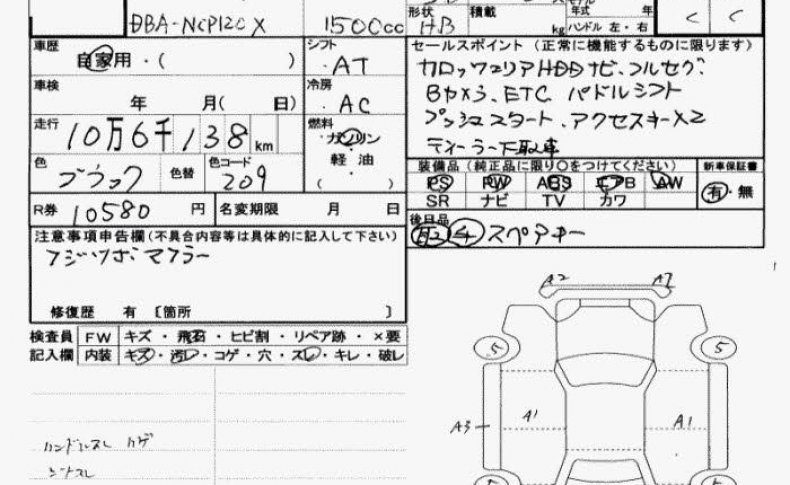 形状 積載 年式 年
DBA-NCP120X 1500cc HB kg ハンドル 左・右 < <
車歴 自家用・( ) シフト AT
セールスポイント (正常に機能するものに限ります)
カロッツェリアHDDナビ、フルセグ、
車検 年 月( 日) 冷房 AC
Bカメラ、ETC パドルシフト
プッシュスタート、アクセスキーX2
走行 10万6千138km 燃料 ガソリン
軽油
( )
ディーラー下取車
色 ブラック 色替 色コード 209
装備品 (純正品に限り○をつけてください) 新車保証書
PS PW ABS エアB AW 有・無
SR ナビ TV カワ
R券 10580 円 名変期限 月 日
後日品
取 手 スペアキー
注意事項申告欄(不具合内容等は具体的に記入して下さい)
フジツボマフラー
修復歴 有 〔箇所 〕
検査員 FW キズ・飛石・ヒビ割・リペア跡・×要
記入欄 内装 キズ・汚レ・コゲ・穴・スレ・キレ・破レ
A2 A2
5 5
A3 A1 A1
ハンドルスレ カゲ
シートスレ
5 5